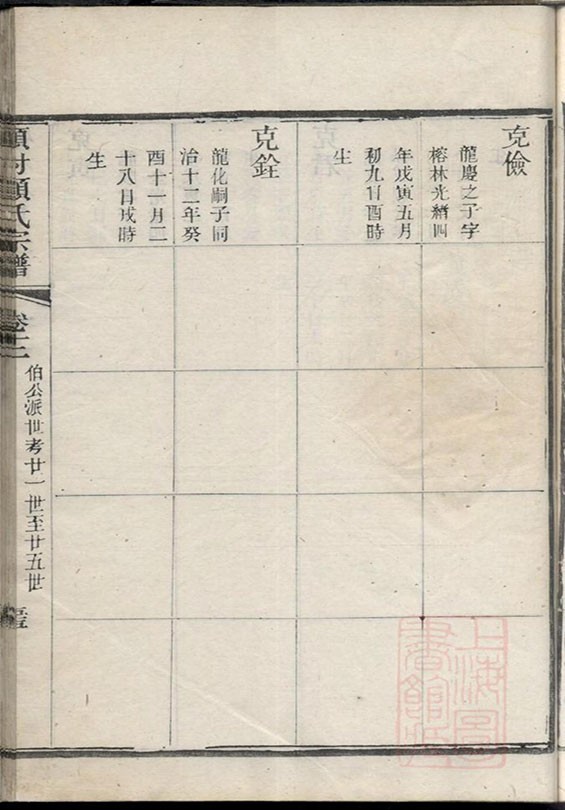 克儉
龍慶之子字
榕林光緒四
年戊寅五月
初九日酉時
生
克銓
龍化嗣子同
治十二年癸
酉十一月二
十八日戌時
生
項氏宗譜
卷十二
伯公派世考廿一世至廿五世
上海圖
書館藏